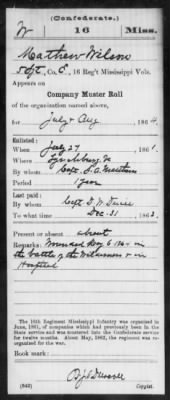 (Confederate.)
W 16 Miss.
Mathew Wilson
Co. C, 16 Reg't Mississippi Vols.
Appears on
Company Muster Roll
of the organization named above,
for July & Aug, 1864
Enlisted:
When July 27, 1861.
Where Lynchburg Va
By whom Capt.
Period 1 year
Last paid:
By whom Capt D. W.
To what time Dec. 31, 1863.
Present or absent absent
Remarks: Wounded May 6 1864 in
the battle of the Wilderness & in
Hospital
The 16th Regiment Mississippi Infantry was organized in
June, 1861, of companies which had previously been in the
State service and were mustered into the Confederate service
for twelve months. About May, 1862, the regiment was re-
organized for the war.
Book mark:
(642)
Copyist.